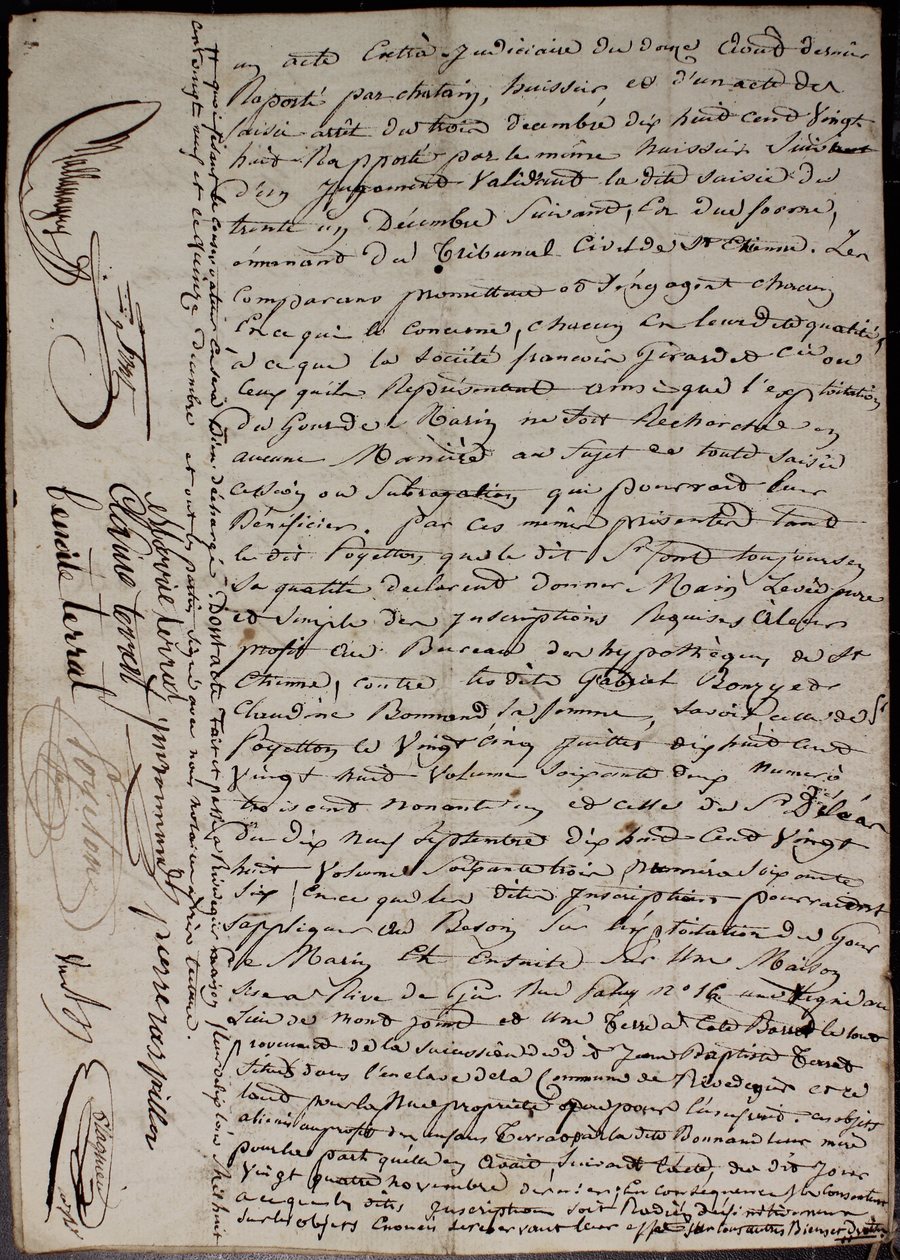 un acte Extrà-judiciaire du douze Aoûst dernier
Raporté par chatain, huissier, et d'un acte de
saisie arrêt du trois decembre dix huit cent Vingt
huit Rapporté par le même huissier Suivi
d'un Jugement Validant la dite saisie du
trente un Décembre Suivant, En due forme,
émanand du Tribunal Civil de St Etienne. Les
Comparans promettent et s'engagent chacun
En ce qui le Concerne, chacun En leur dite qualité,
à ce que la Société francois Girard et Cie ou
Ceux qu'ils Représentent ainsi que l'exploitation
du Gour de Marin ne soit Recherchée en
aucune Manière au Sujet de toute saisie
cession ou Subrogation qui pourrait leur
Bénéficier. par ces mêmes présentes tant
le dit Poyeton, que le dit Sr fond toujours en
Sa qualité declarent donner Main Levée pure
et Simple des Inscriptions Requises à leur
profit au Bureau des hypothèques de St
Etienne, contre les dits Gabriel Bonzy et
Claudine Bonnand sa femme, savoir celle de Sr
Poyetton le Vingt cinq Juillet dix huit cent
Vingt huit Volume soixante deux Numero
trois cent nonante un et celle du Sr
du dix neuf Septembre dix huit Cent Vingt
huit Volume Soixante trois Numéro Soixante
Six, En ce que les dites Inscriptions pourraient
s'appliquer au Besoin Sur l'exploitation du Gour
de Marin Et Ensuite Sur Une Maison
sise a Rive de Gier Rue Paluy n° 16 une Vigne au
Lieu de mont joint et Une Terre a Cote Borré le tout
provenant de la succession du dit Jean Baptiste Terrat
situés dans l'enclave de la Commune de Rivedegier et ce
tant pour la Nue propriété que pour l'usufruit. ces objets
aliénés au profit des enfans Terrat par la dite Bonnand leur mère
pour la part qu'elle en Avait Suivant l'acte du dit Jour
Vingt quatre novembre dernier; En conséquence Ils Consentent
a ce que les dites Inscriptions soit Radiées definitivement
sur les objets Enoncés se reservant leur effet sur tous autres Biens et Droits
et que faisant le conservateur ce sera bien déchargé. Dont acte fait et passé a Rivedegier maison fleurdelix l'an dix huit
cent vingt neuf et le quinze decembre et ont les parties signé avec nous notaires après lecture.
fond
benoite terrat
Claude terrat
Marie terrat
pierre aspiller
Poyeton